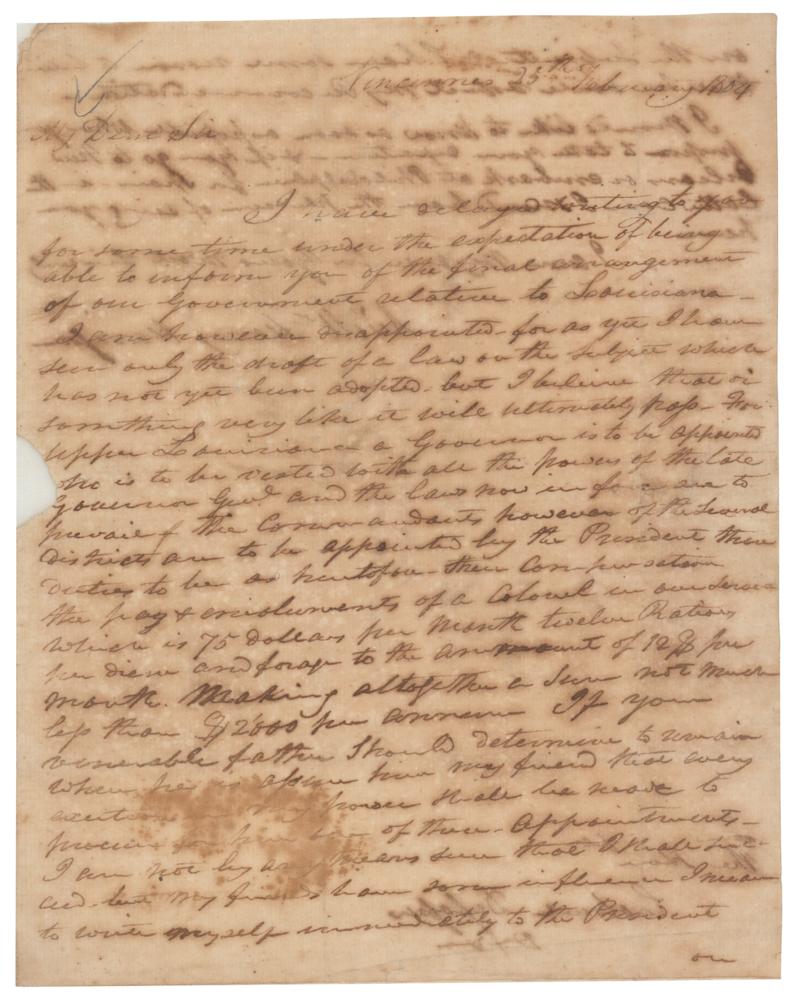 Vincennes 25th February 1804
My Dear Sir
I have delayed writing to you
for some time under the expectation of being
able to inform you of the final arrangement
of our Government relative to Louisiana -
I am however disappointed - for as yet I have
seen only the draft of a law on the subject which
has not yet been adopted - but I believe that or
something very like it will ultimately pass - For
upper Louisiana a Governor is to be appointed
who is to be vested with all the powers of the late
Governor Genl and the laws now in force are to
prevail the Commandants however of the several
districts are to be appointed by the President their
duties to be as heretofore - their compensation
the pay & emoluments of a Colonel in our service
which is 75 dollars per month twelve Rations
per diem and forage to the amount of 12 $ per
month. Making altogether a Sum not much
less than $2000 per annum If your
venerable father Should determine to remain
where he is assure him my friend that every
exertion in my power shall be made to
procure for him one of these appointments -
I am not by any means sure that I shall suc-
ceed - but my friends have some influence I mean
to write myself immediately to the President
on